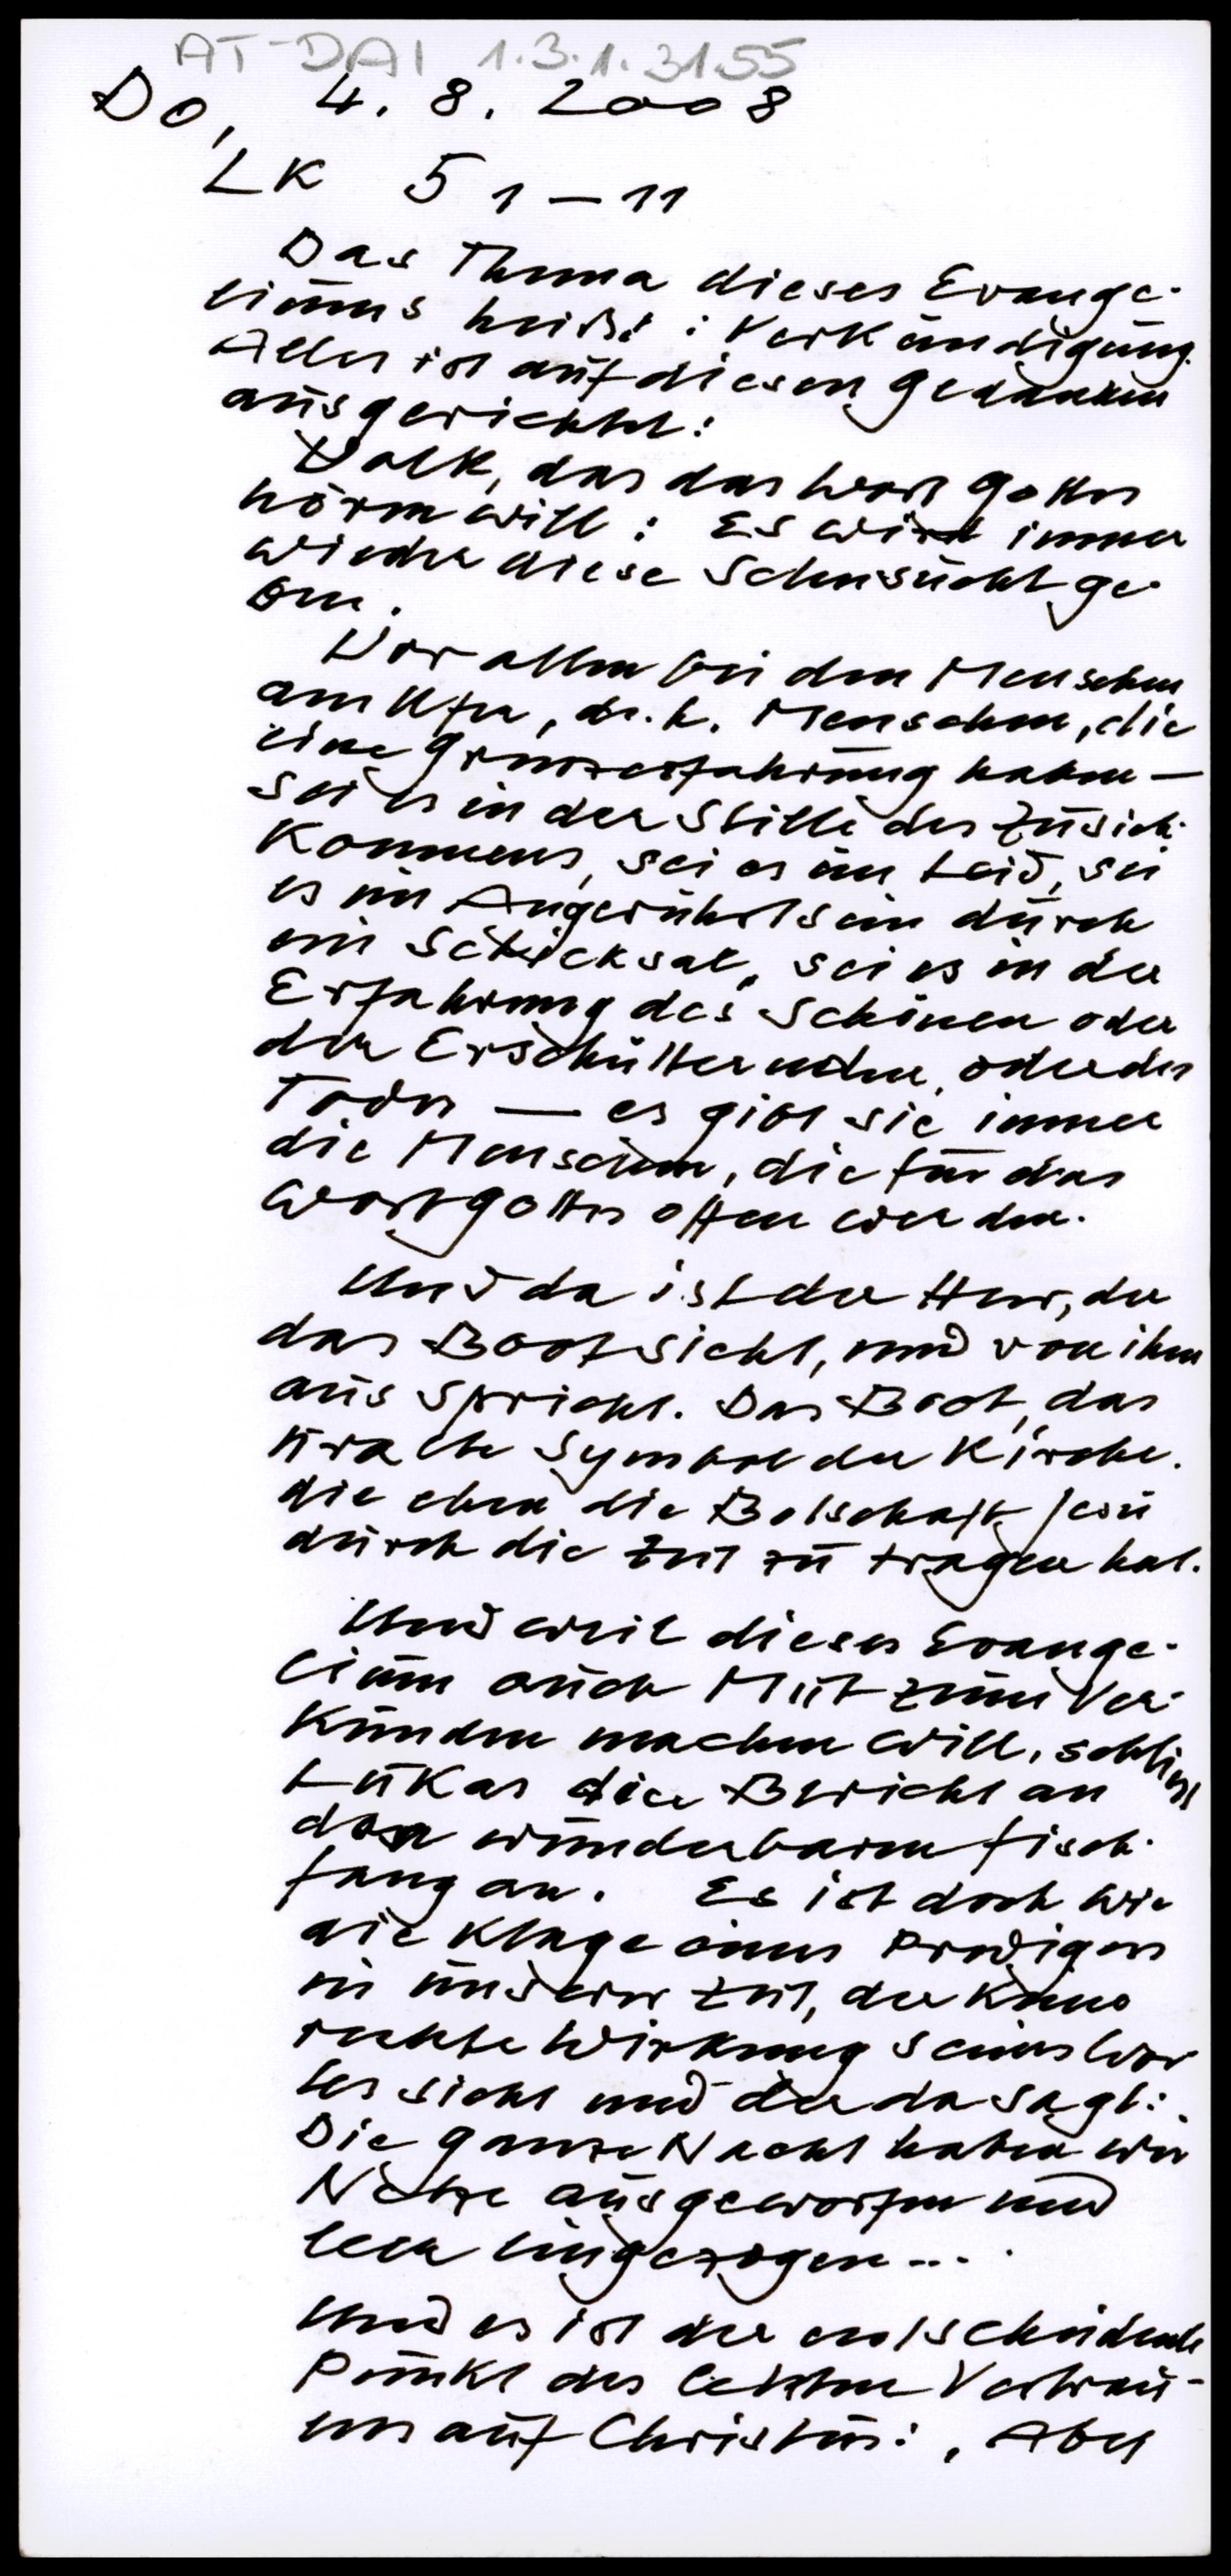 AT-DAI 1.3.1.31.55
Do, 4. 8. 2008
LK 5 1-11
Das Thema dieses Evange-
liums heißt: Verkündigung.
Alles ist auf diesen Gedanken
ausgerichtet:
Volk, das das Wort Gottes
hören will: Es wird immer
wieder diese Sehnsucht ge-
ben.
Vor allem bei den Menschen
am Ufer, d.h. Menschen, die
eine Grenzerfahrung haben —
sei es in der Stille des Zusich-
kommens, sei es im Leid, sei
es im Angerührtsein durch
ein Schicksal, sei es in der
Erfahrung des Schönen oder
des Erschütternden, oder des
Todes — es gibt sie immer
die Menschen, die für das
Wort Gottes offen werden.
Und da ist der Herr, der
das Boot sieht, und von ihm
aus spricht. Das Boot, das
uralte Symbol der Kirche.
die eben die Botschaft Jesu
durch die Zeit zu tragen hat.
Und weil dieses Evange-
lium auch Mut zum Ver-
künden machen will, schließt
Lukas den Bericht an
den wunderbaren Fisch-
fang an. Es ist doch wie
die Klage eines Predigers
in unserer Zeit, der keine
rechte Wirkung seines Wor
tes sieht und der da sagt:
Die ganze Nacht haben wir
Netze ausgeworfen und
leer eingezogen...
Und es ist der entscheidende
Punkt des letzten Vertrau-
ens auf Christus: , Aber